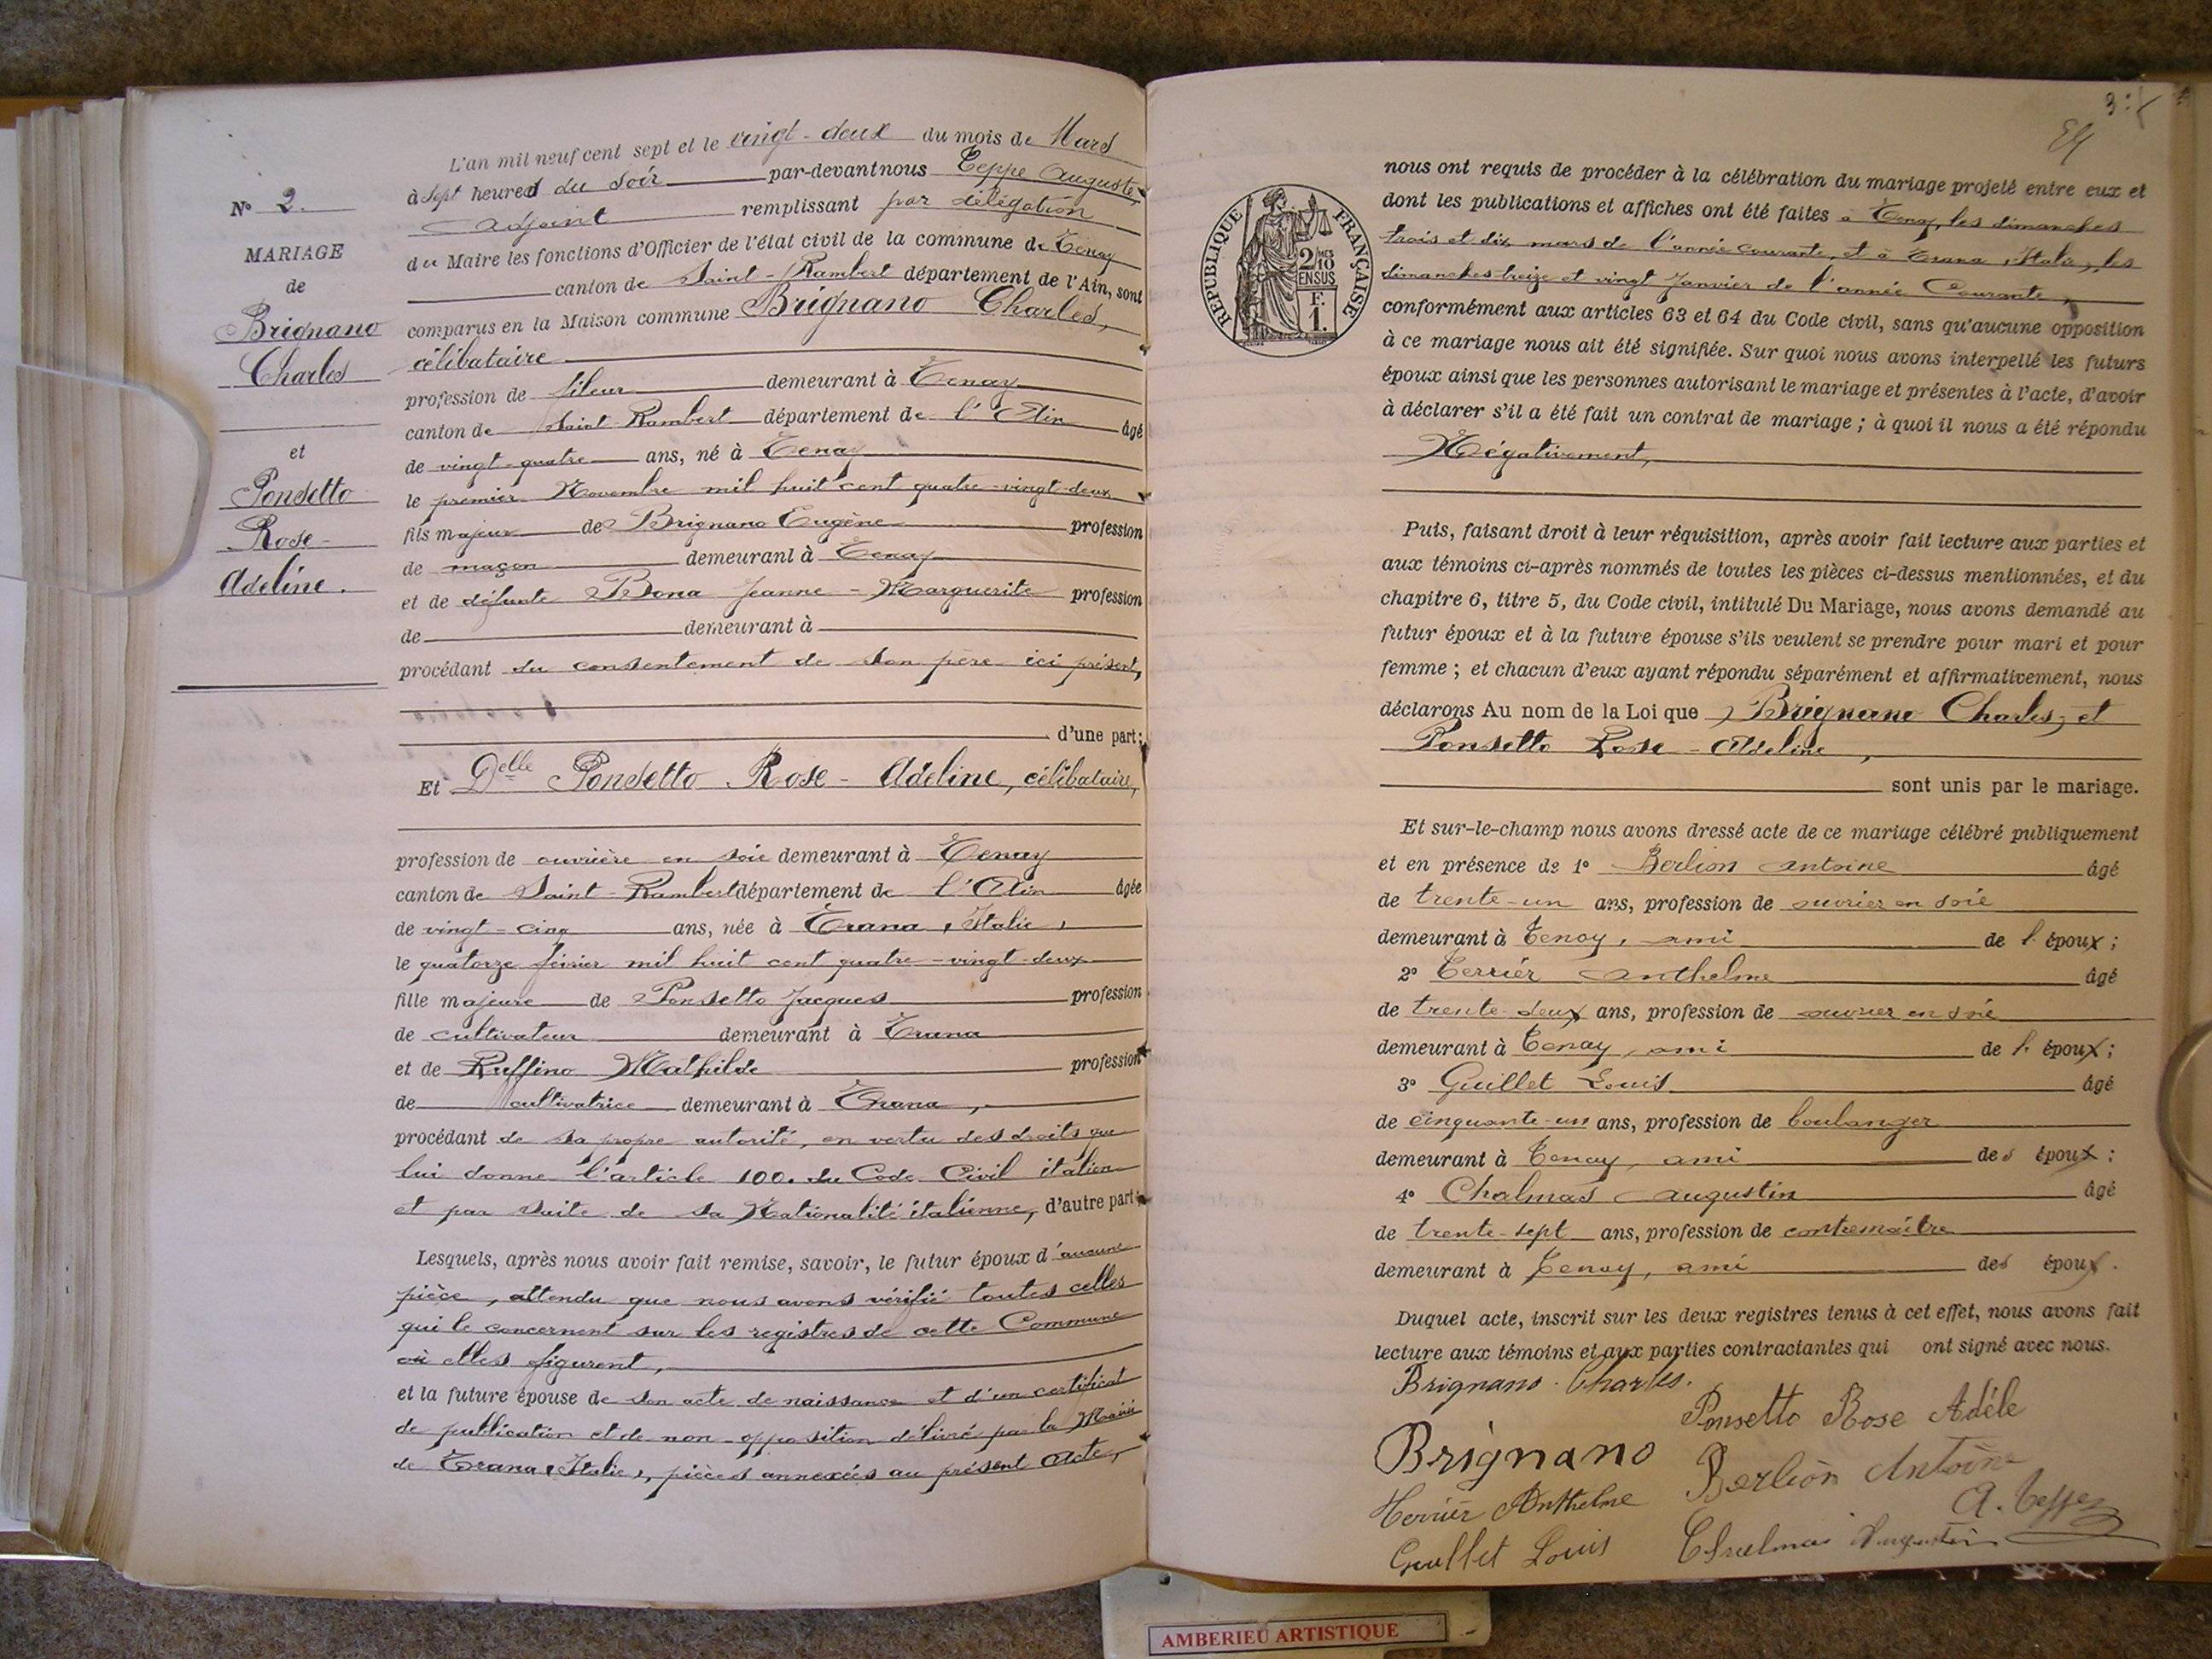 L'an mil neuf cent sept et le vingt-deux du mois de Mars
à sept heures du soir par-devant nous Teppe Auguste
adjoint remplissant par délégation
du Maire les fonctions d'Officier de l'état civil de la commune de Tenay
canton de Saint-Rambert département de l'Ain, sont
comparus en la Maison commune Brignano Charles,
célibataire
profession de fileur demeurant à Tenay
canton de Saint-Rambert département de l'Ain âgé
de vingt-quatre ans, né à Tenay
le premier Novembre mil huit cent quatre-vingt-deux
fils majeur de Brignano Eugène profession
de maçon demeurant à Tenay
et de défunte Bona Jeanne-Marguerite profession
de demeurant à
procédant du consentement de son père ici présent,
d'une part;
N° 2.
MARIAGE
de
Brignano
Charles
et
Ponsetto
Rose-
Adeline.
Et Delle Ponsetto Rose-Adeline, célibataire,
profession de ouvrière en soie demeurant à Tenay
canton de Saint-Rambert département de l'Ain âgée
de vingt-cinq ans, née à Trana, Italie,
le quatorze février mil huit cent quatre-vingt-deux
fille majeure de Ponsetto Jacques profession
de cultivateur demeurant à Trana
et de Ruffino Mathilde profession
de cultivatrice demeurant à Trana,
procédant de sa propre autorité, en vertu des droits que
lui donne l'article 100. du Code Civil italien
et par suite de sa Nationalité italienne, d'autre part;
Lesquels, après nous avoir fait remise, savoir, le futur époux d'aucune
pièce, attendu que nous avons vérifié toutes celles
qui le concernent sur les registres de cette Commune
où elles figurent,
et la future épouse de son acte de naissance et d'un certificat
de publication et de non-opposition délivré par la Mairie
de Trana (Italie), pièces annexées au présent acte,
RÉPUBLIQUE FRANÇAISE
2/10
EN SUS
F.
1.
nous ont requis de procéder à la célébration du mariage projeté entre eux et
dont les publications et affiches ont été faites à Tenay, les dimanches
trois et dix mars de l'année courante, et à Trana, Italie, les
dimanches treize et vingt Janvier de l'année Courante,
conformément aux articles 63 et 64 du Code civil, sans qu'aucune opposition
à ce mariage nous ait été signifiée. Sur quoi nous avons interpellé les futurs
époux ainsi que les personnes autorisant le mariage et présentes à l'acte, d'avoir
à déclarer s'il a été fait un contrat de mariage; à quoi il nous a été répondu
Négativement,
Puis, faisant droit à leur réquisition, après avoir fait lecture aux parties et
aux témoins ci-après nommés de toutes les pièces ci-dessus mentionnées, et du
chapitre 6, titre 5, du Code civil, intitulé Du Mariage, nous avons demandé au
futur époux et à la future épouse s'ils veulent se prendre pour mari et pour
femme; et chacun d'eux ayant répondu séparément et affirmativement, nous
déclarons Au nom de la Loi que Brignano Charles, et
Ponsetto Rose-Adeline,
sont unis par le mariage.
Et sur-le-champ nous avons dressé acte de ce mariage célébré publiquement
et en présence de 1° Berlion Antoine âgé
de trente-un ans, profession de ouvrier en soie
demeurant à Tenay, ami de l'époux;
2° Terrier Anthelme âgé
de trente-deux ans, profession de ouvrier en soie
demeurant à Tenay, ami de l'époux;
3° Guillet Louis âgé
de cinquante-un ans, profession de boulanger
demeurant à Tenay, ami des époux;
4° Chalmas Augustin âgé
de trente-sept ans, profession de contremaître
demeurant à Tenay, ami des époux.
Duquel acte, inscrit sur les deux registres tenus à cet effet, nous avons fait
lecture aux témoins et aux parties contractantes qui ont signé avec nous.
Brignano Charles.
Ponsetto Rose Adèle
Brignano
Berlion Antoine
Terrier Anthelme
A. Teppe
Guillet Louis
Chalmas Augustin
AMBERIEU ARTISTIQUE